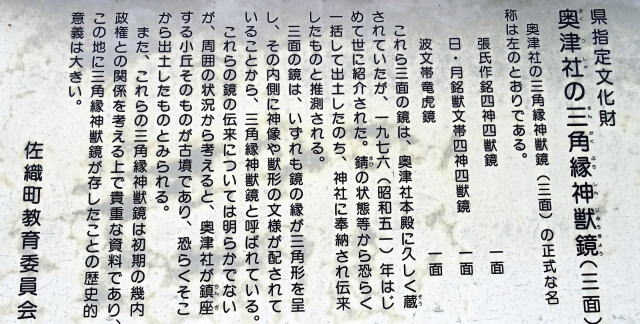 県指定文化財
奥津社の三角縁神獣鏡（三面）
奥津社の三角縁神獣鏡（三面）の正式な名
称は左のとおりである。
張氏作銘四神四獣鏡　一面
日・月銘獣文帯四神四獣鏡　一面
波文帯竜虎鏡　一面
これら三面の鏡は、奥津社本殿に久しく蔵
されていたが、一九七六（昭和五一）年はじ
めて世に紹介された。錆の状態等から恐らく
一括して出土したのち、神社に奉納され伝来
したものと推測される。
三面の鏡は、いずれも鏡の縁が三角形を呈
し、その内側に神像や獣形の文様が配されて
いることから、三角縁神獣鏡と呼ばれている。
これらの鏡の伝来については明らかでない
が、周囲の状況から考えると、奥津社が鎮座
する小丘そのものが古墳であり、恐らくそこ
から出土したものとみられる。
また、これらの三角縁神獣鏡は初期の畿内
政権との関係を考える上で貴重な資料であり、
この地に三角縁神獣鏡が存したことの歴史的
意義は大きい。
佐織町教育委員会